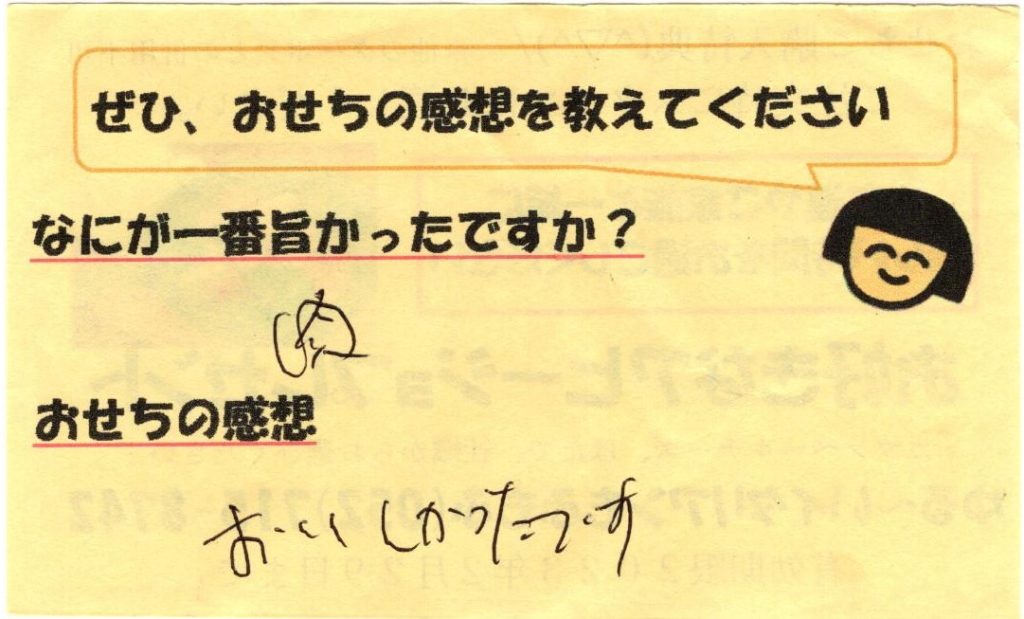 ぜひ、おせちの感想を教えてください
なにが一番旨かったですか？
肉
おせちの感想
おいしかったです